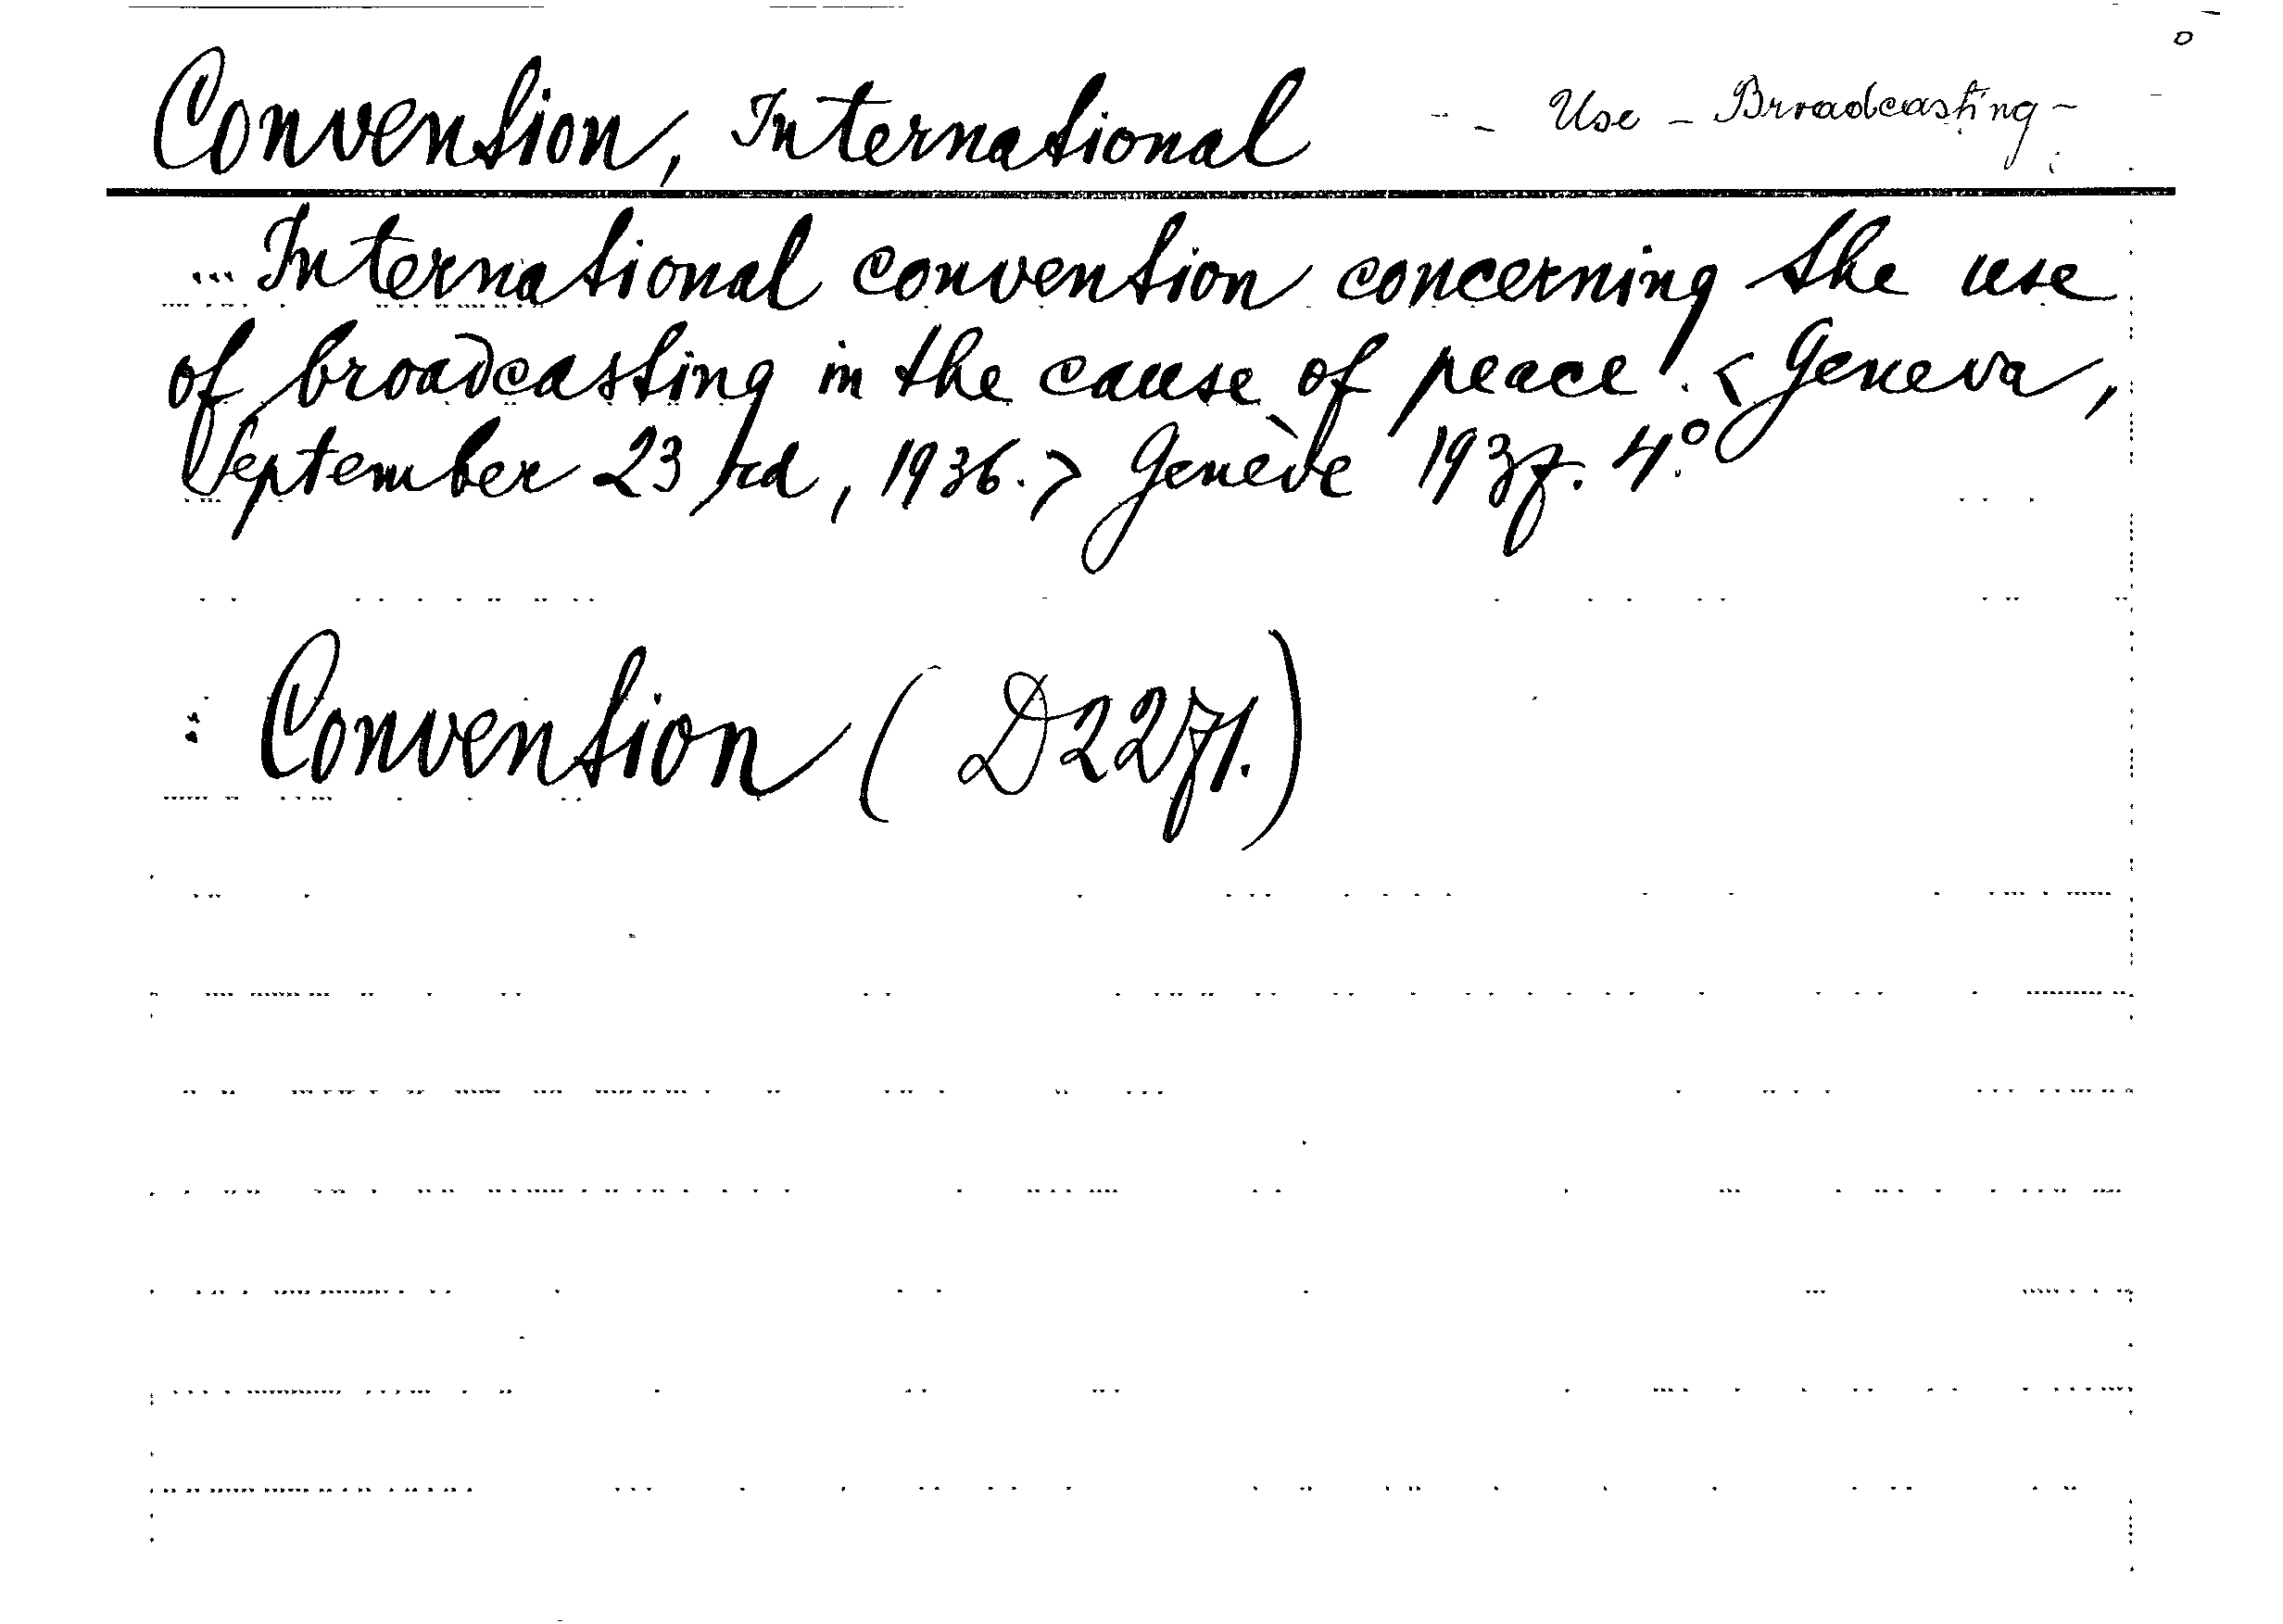 Convention, International - Use - Broadcasting -
International convention concerning the use
of broadcasting in the cause of peace. < Geneva,
September 23 rd, 1936. > Genève 1937. 4°.
Convention (D2271.)